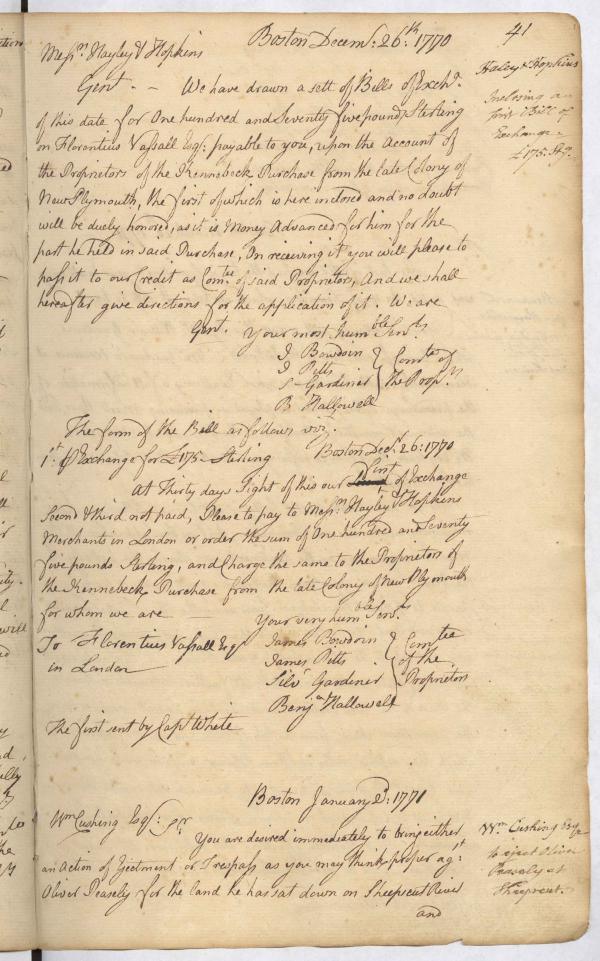 41
Boston Decem: 26th. 1770
Messrs. Hayley & Hopkins
Haley & Hopkins
Inclosing a
first Bill of
Exchange
£175. Stg.
Gent. — We have drawn a sett of Bills of Exchg.
of this date for One hundred and Seventy five pounds Sterling
on Florentius Vassall Esqr: payable to you, upon the Account of
the Proprietors of the Kennebeck Purchase from the late Colony of
New Plymouth, the first of which is here inclosed and no doubt
will be duely honored, as it is Money Advanced for him for the
part he held in said Purchase, On receiving it you will please to
pass it to our Credit as Comtee. of said Proprietors, And we shall
hereafter give directions for the application of it. We are
Gent. Your most humble Servts
J Bowdoin
J Pitts
S Gardiner
B Hallowell
Comtee of
the Proprs
The form of the Bill as follows viz.
Boston Decr. 26: 1770
1st: of Exchange for £175 Sterling
At Thirty days Sight of this our First of Exchange
Second & third not paid, Please to pay to Messrs Hayley & Hopkins
Merchants in London or order the sum of One hundred and Seventy
five pounds Sterling, and Charge the same to the Proprietors of
the Kennebeck Purchase from the late Colony of New Plymouth
for whom we are — Your very humble Servts
To Florentius Vassall Esqr
in London
James Bowdoin
James Pitts
Silvr Gardiner
Benja Hallowell
Comtee
of the
Proprietors
The first sent by Capt White
Boston January 2d: 1771
Wm Cushing Esqr: Sr
Wm. Cushing Esqr
to eject Oliver
Peasely at
Sheepscut.
You are desired immediately to bring either
an Action of Ejectment or Trespass as you may think proper agst:
Oliver Peasely for the land he has sat down on Sheepscut River
and